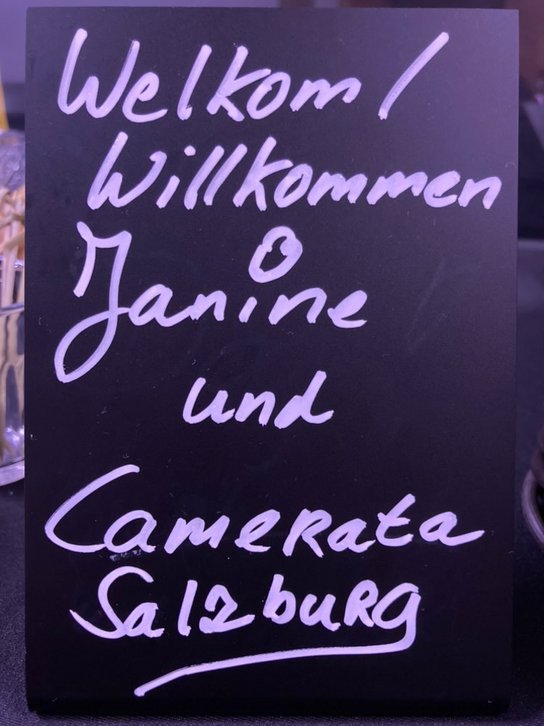 Welkom/
Willkommen
Janine
und
Camerata
Salzburg